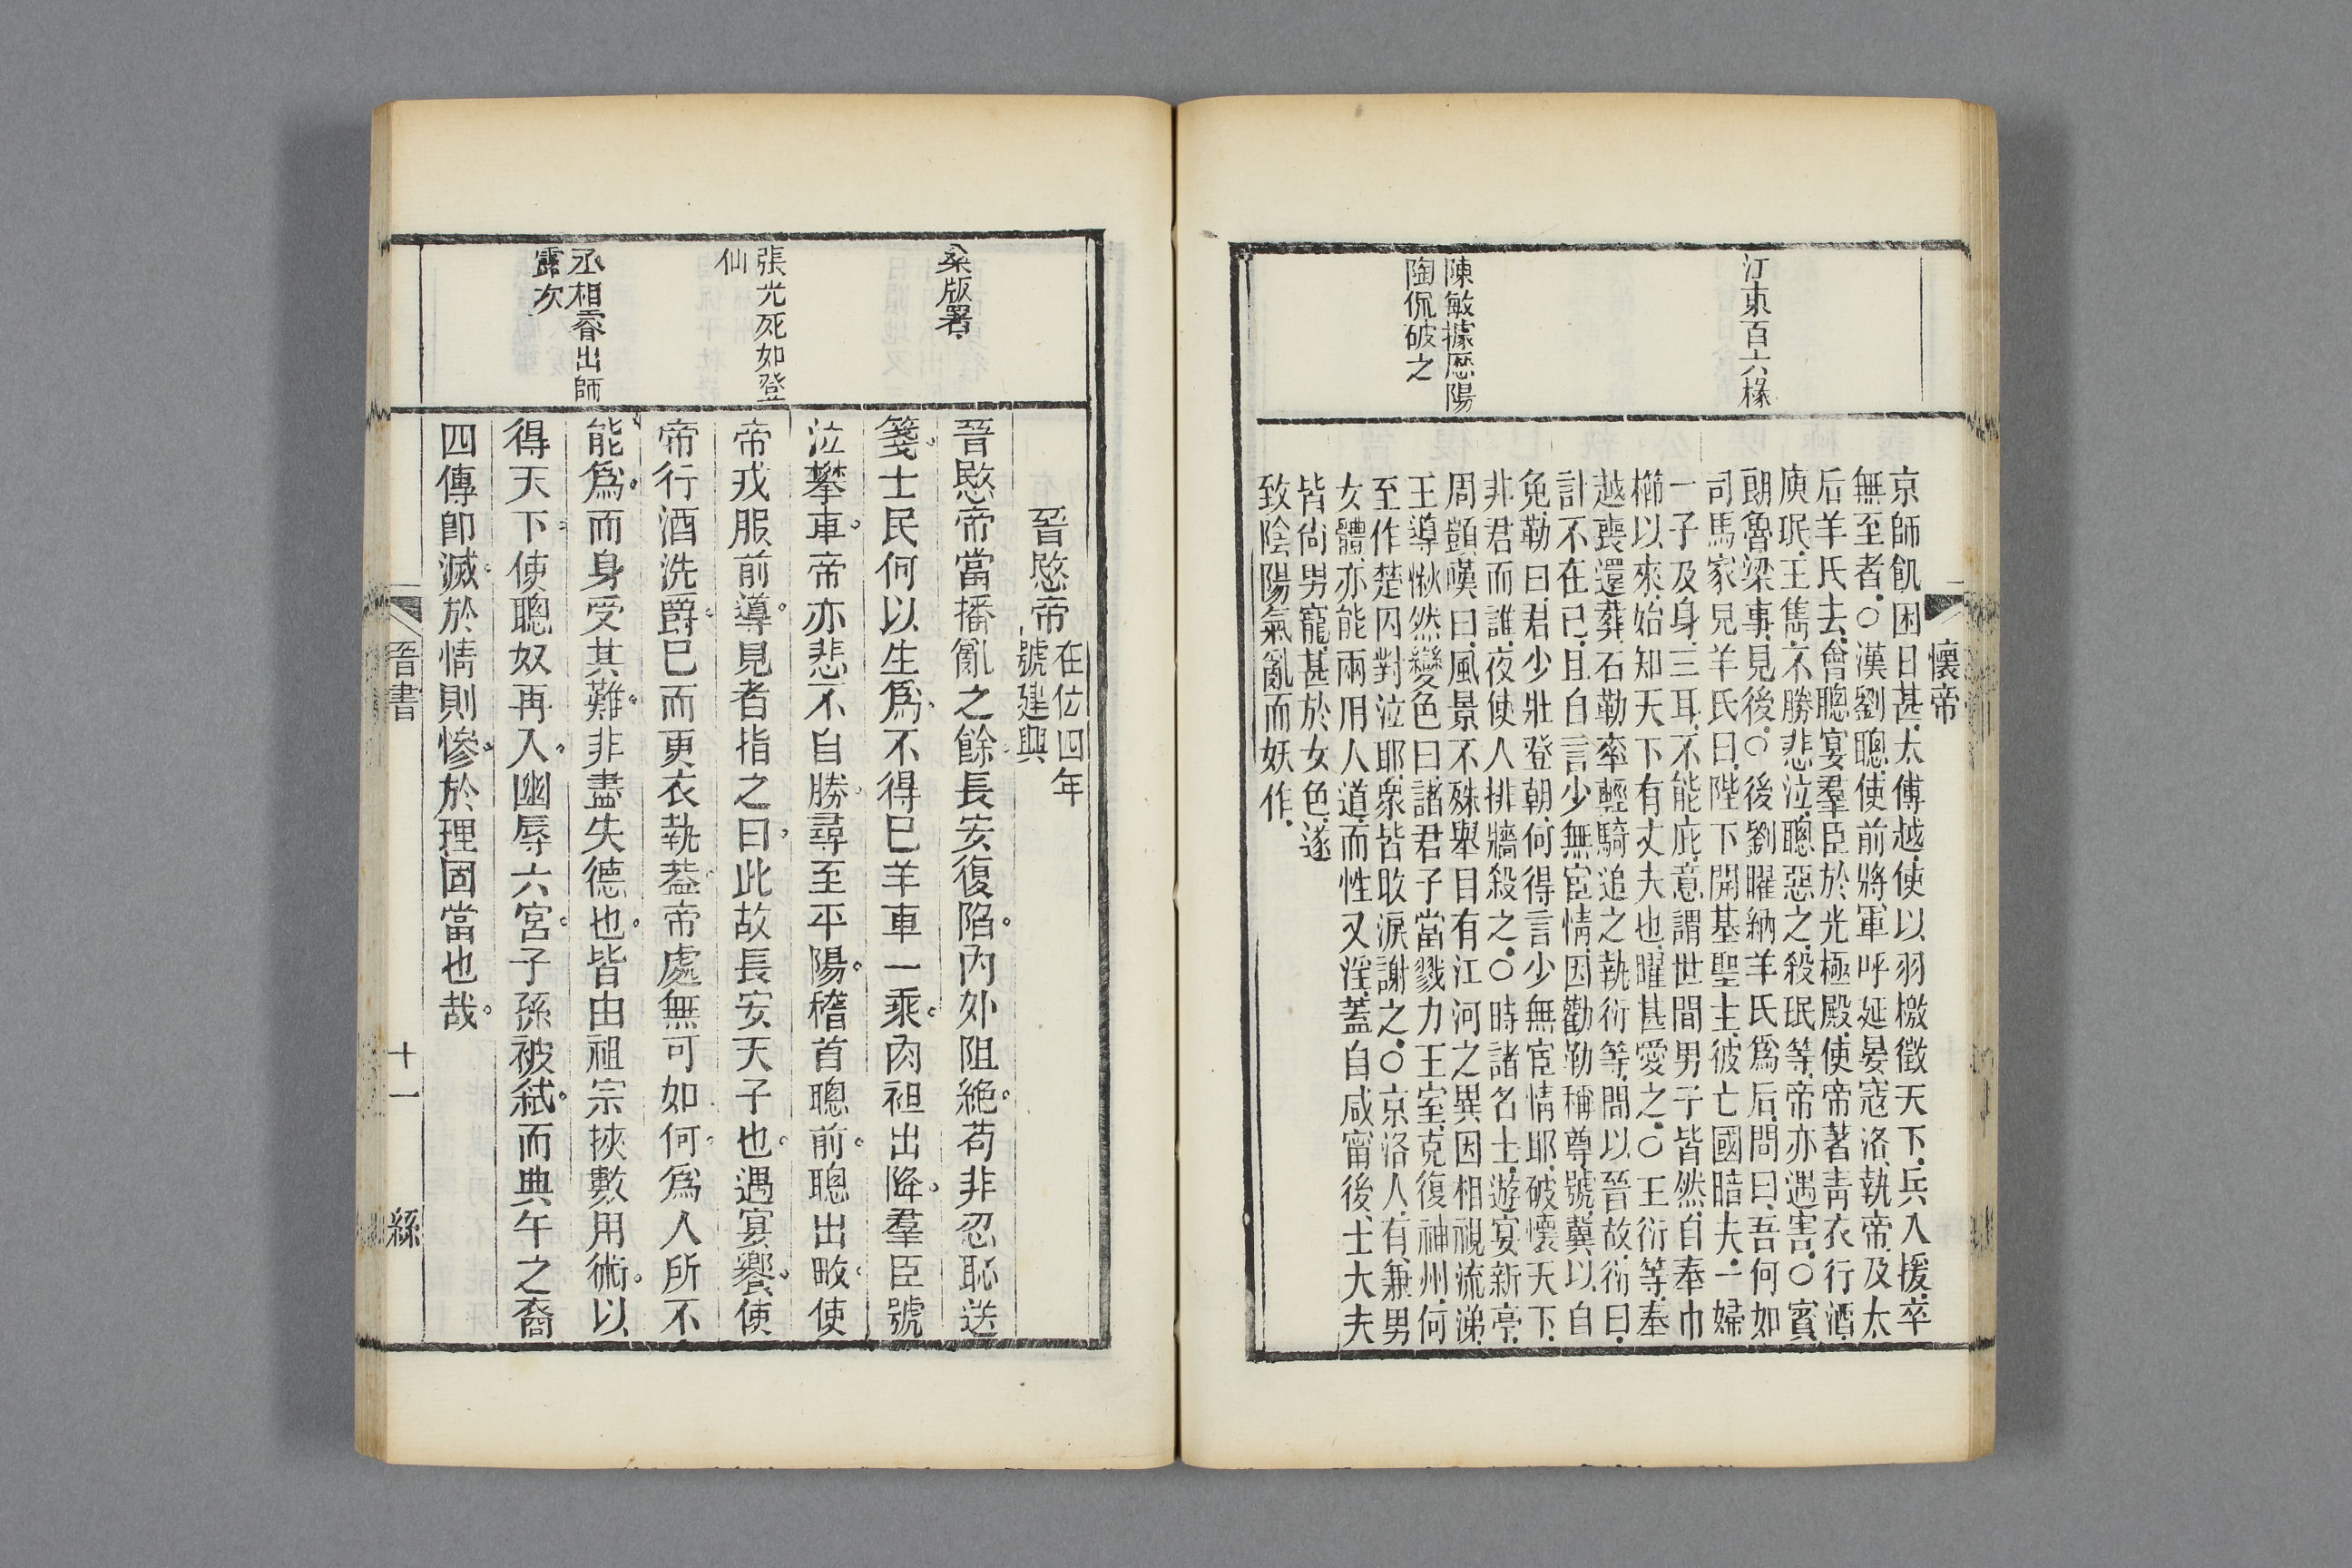 懷帝
江東百六掾
陳敏據歷陽
陶侃破之
京師飢困日甚太傅越使以羽檄徵天下兵入援卒
無至者○漢劉聰使前將軍呼延晏寇洛執帝及太
后羊氏去會聰宴羣臣於光極殿使帝著靑衣行酒
庾珉王雋不勝悲泣聰惡之殺珉等帝亦遇害○賓
朗魯梁事見後○後劉曜納羊氏爲后問曰吾何如
司馬家兒羊氏曰陛下開基聖主彼亡國暗夫一婦
一子及身三耳不能庇意謂世間男子皆然自奉巾
櫛以來始知天下有丈夫也曜甚愛之○王衍等奉
越喪還葬石勒率輕騎追之執衍等問以晉故衍曰
計不在已且自言少無宦情因勸勒稱尊號冀以自
免勒曰君少壯登朝何得言少無宦情耶破懷天下
非君而誰夜使人排牆殺之○時諸名士遊宴新亭
周顗嘆曰風景不殊舉目有江河之異因相視流涕
王導愀然變色曰諸君子當戮力王室克復神州何
至作楚囚對泣耶衆皆收淚謝之○京洛人有兼男
女體亦能兩用人道而性又淫蓋自咸甯後士大夫
皆尚男寵甚於女色遂
致陰陽氣亂而妖作
桑版署
張光死如登
仙
丞相睿出師
露次
晉愍帝在位四年
號建興
晉愍帝當播亂之餘長安復陷內外阻絶苟非忍恥送
箋士民何以生爲不得已羊車一乘肉袒出降羣臣號
泣攀車帝亦悲不自勝尋至平陽稽首聰前聰出畋使
帝戎服前導見者指之曰此故長安天子也遇宴饗使
帝行酒洗爵已而更衣執葢帝處無可如何爲人所不
能爲而身受其難非盡失德也皆由祖宗挾數用術以
得天下使聰奴再入幽辱六宮子孫被弑而典午之裔
四傳卽滅於情則慘於理固當也哉
晉書
十一
縣